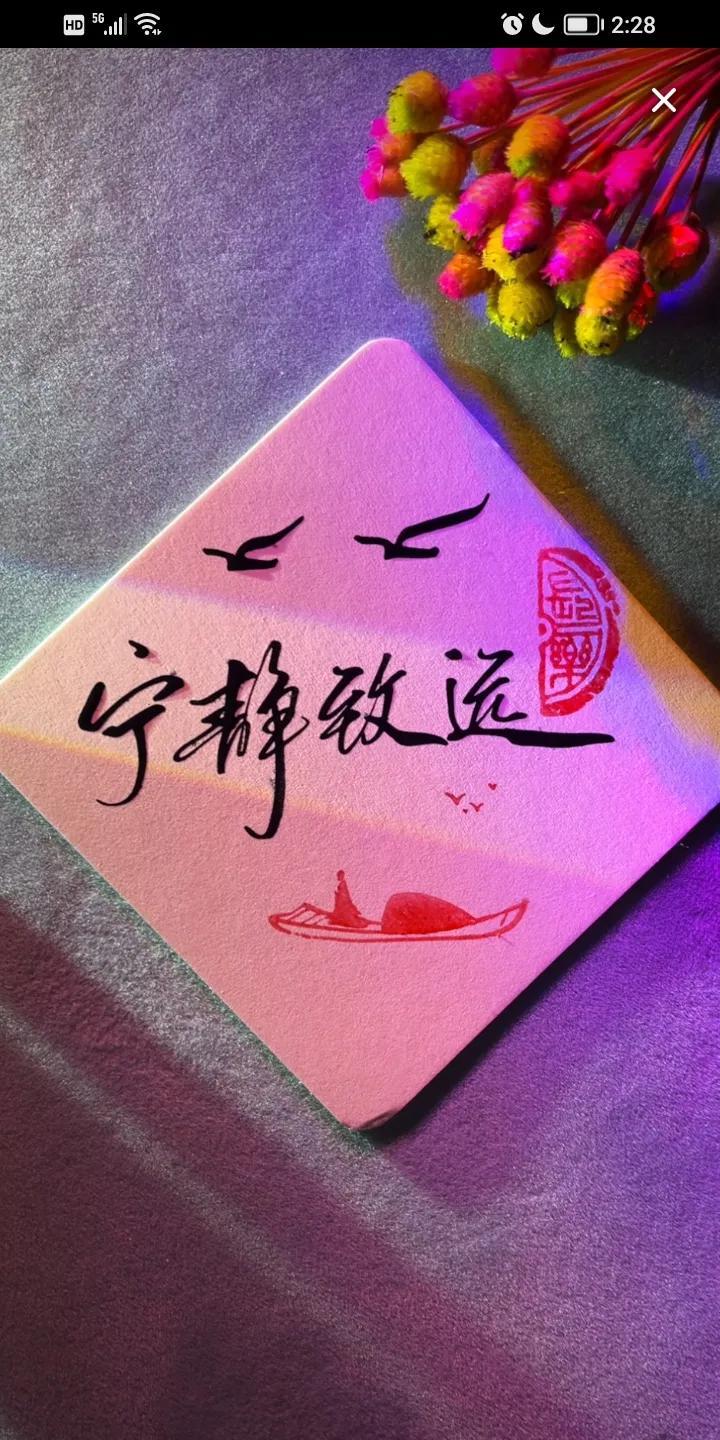 HD 5G 2:28
宁静致远